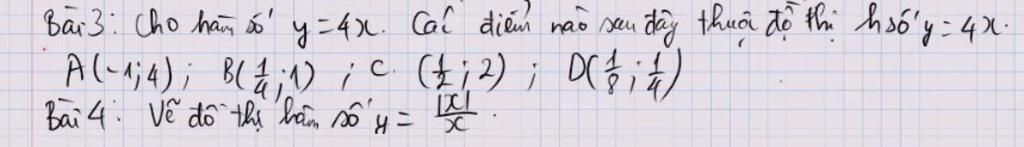 Bài 3: Cho hàm số y = 4x. Các điểm nào sau đây thuộc đồ thị h số y = 4x.
A(-1;4); B(1/4;1); C. (1/2;2); D(1/8;1/4)
Bài 4: Vẽ đồ thị hàm số y = |x|/x.